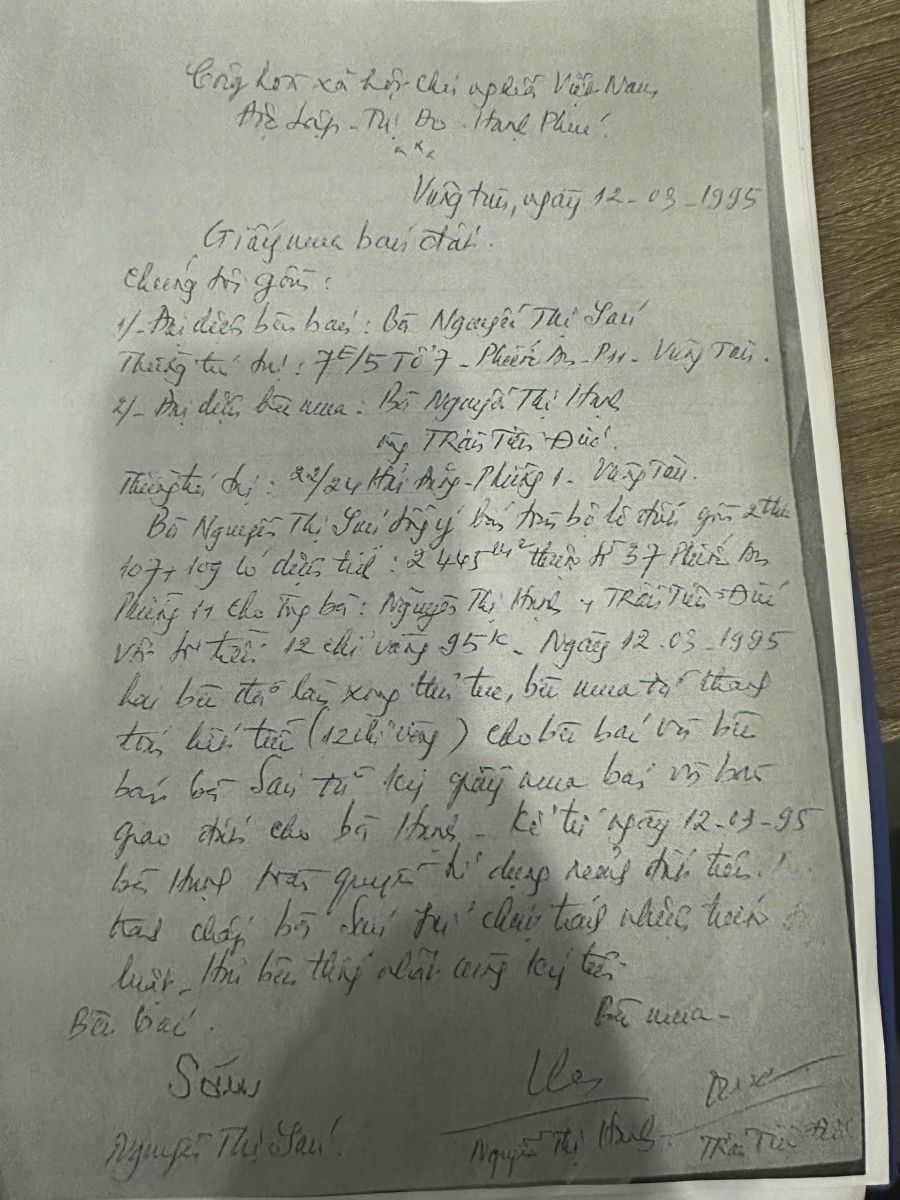 Cộng hoà xã hội chủ nghĩa Việt Nam
Độc lập - Tự Do - Hạnh Phúc
Vũng tàu, ngày 12-03-1995
Giấy mua bán đất.
Chúng tôi gồm:
1/- Đại diện bên bán: Bà Nguyễn Thị Sáu
Thường trú tại: 7E/5 Tổ 7 - Phước An - P11 - Vũng Tàu.
2/- Đại diện bên mua: Bà Nguyễn Thị Hạnh
ông Trần Tiến Đức.
Thường trú tại: 22/24 - Phường 1 - Vũng Tàu.
Bà Nguyễn Thị Sáu đồng ý bán toàn bộ lô đất gồm 2 thửa
107 + 109 có diện tích: 2445m2 thuộc tờ 37 Phước An
Phường 11 cho ông bà: Nguyễn Thị Hạnh + Trần Tiến Đức
với số tiền 12 chỉ vàng 95K - Ngày 12.03-1995
hai bên đã làm xong thủ tục, bên mua đã thanh
toán hết tiền (12 chỉ vàng) cho bên bán và bên
bán bà Sáu đã ký giấy mua bán và bàn
giao đất cho bà Hạnh - Kể từ ngày 12-03-95
bà Hạnh toàn quyền sử dụng mảnh đất trên.
tranh chấp bà Sáu chịu trách nhiệm trước
luật - Hai bên thống nhất cùng ký tên
Bên bán.
Bên mua -
Sáu
Nguyễn Thị Sáu.
Nguyễn Thị Hạnh
Trần Tiến Đức